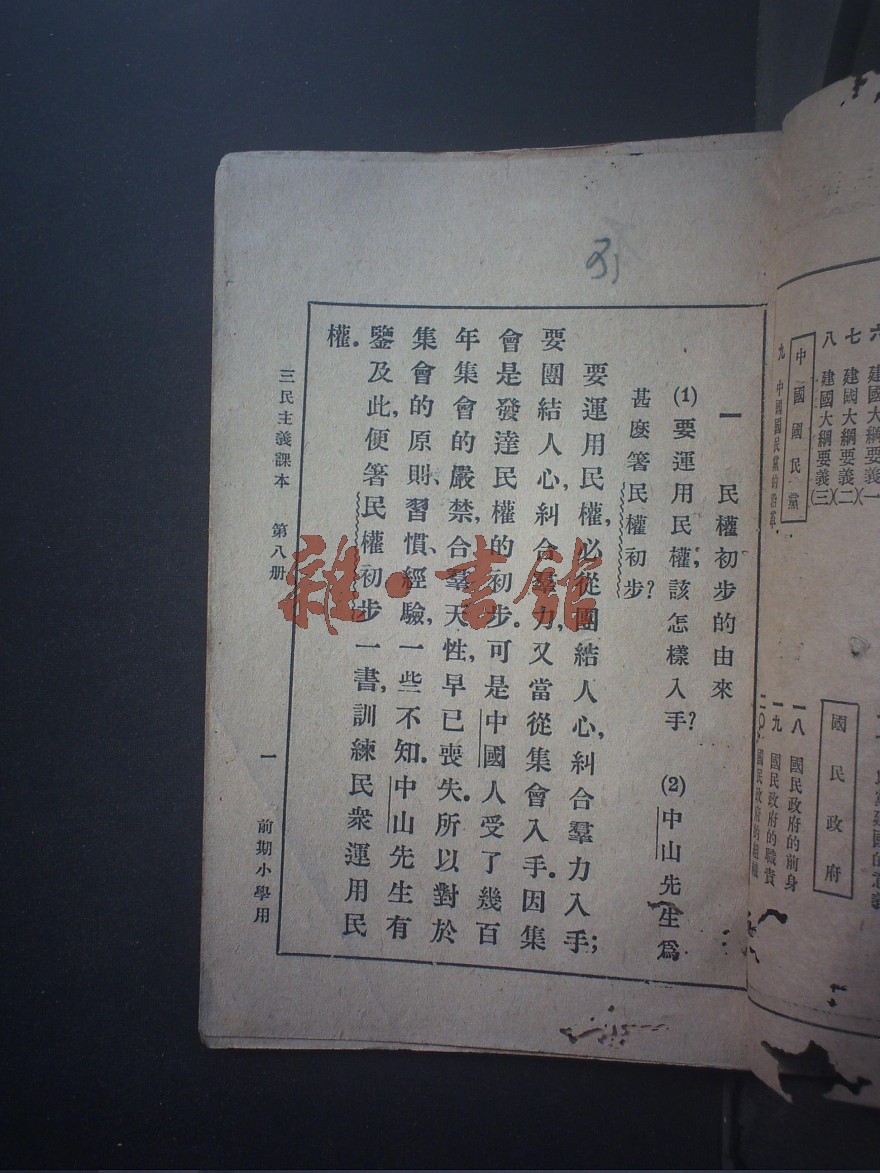 六 建國大綱要義(一)
七 建國大綱要義(二)
八 建國大綱要義(三)
中國國民黨
九 中國國民黨的沿革
國民政府
一八 國民政府的前身
一九 國民政府的職責
二〇 國民政府的組織
一 民權初步的由來
(1)要運用民權,該怎樣入手? (2)中山先生爲
甚麽箸民權初步?
要運用民權,必從團結人心,糾合羣力入手;
要團結人心,糾合羣力,又當從集會入手。因集
會是發達民權的初步。可是中國人受了幾百
年集會的嚴禁,合羣天性,早已喪失。所以對於
集會的原則、習慣、經驗,一些不知。中山先生有
鑒及此,便箸民權初步一書,訓練民衆運用民
權。
三民主義課本 第八册 一 前期小學用
雜·書館